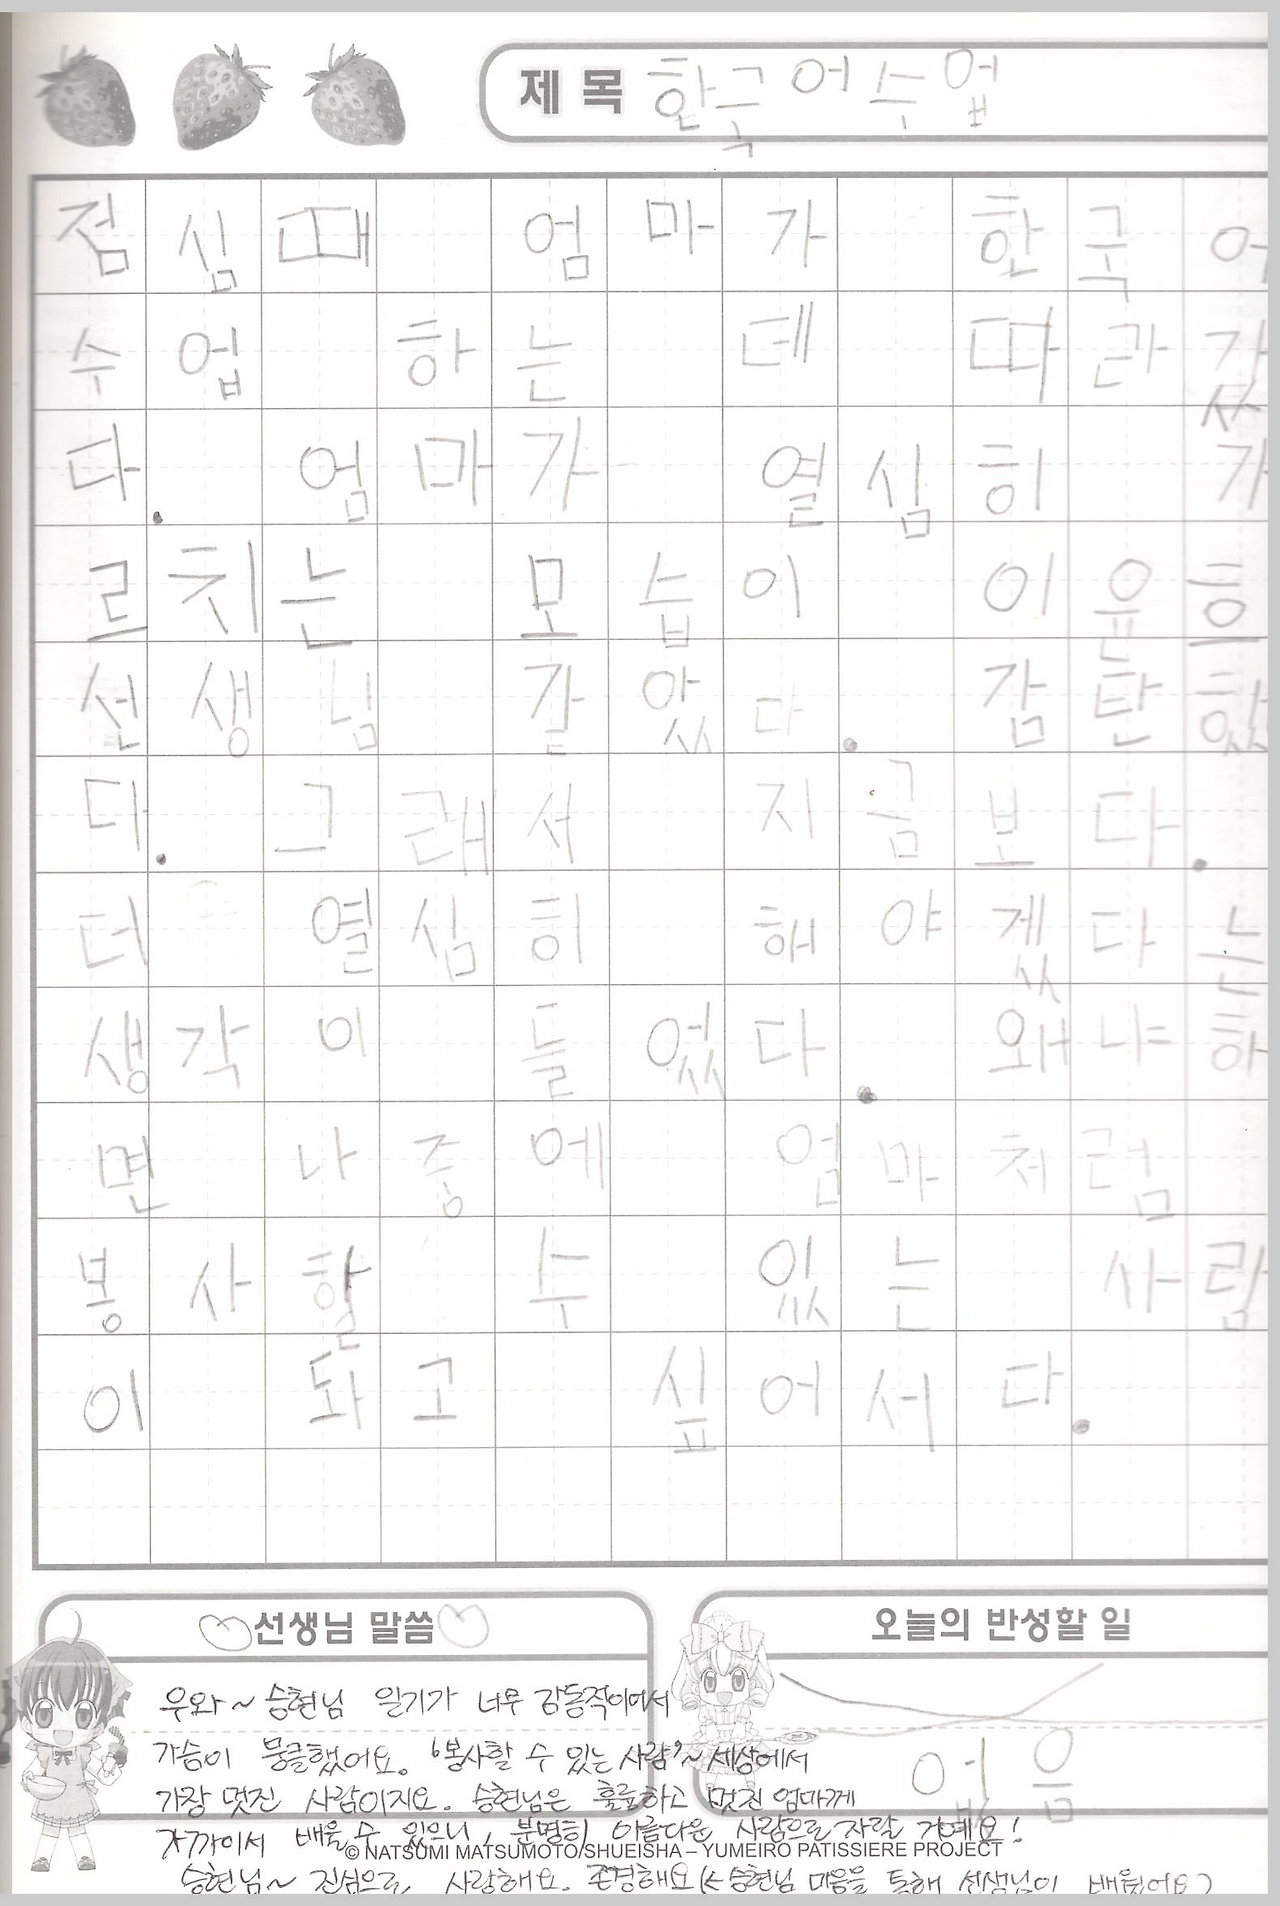 제 목 한국어수업
점심때 엄마가 한국어
수업 하는 데 따라갔
다. 엄마가 열심히 가
르치는 모습이 이윤희
선생님 같았다. 감탄했
다. 그래서 지금보다.
더 열심히 해야겠다는
생각이 들었다. 왜냐하
면 나중에 엄마처럼
봉사할 수 있는 사람
이 돠고 싶어서다.
선생님 말씀
우와~ 승현님 일기가 너무 감동적이여서
가슴이 뭉클했어요. '봉사할 수 있는 사람'~ 세상에서
가장 멋진 사람이지요. 승현님은 훌륭하고 멋진 엄마께
가까이서 배울 수 있으니, 분명히 아름다운 사람으로 자랄 거예요!
승현님~ 진심으로 사랑해요. 존경해요 (승현님 마음을 통해 선생님이 배웠어요)
오늘의 반성할 일
없음
© NATSUMI MATSUMOTO/SHUEISHA – YUMEIRO PATISSIERE PROJECT